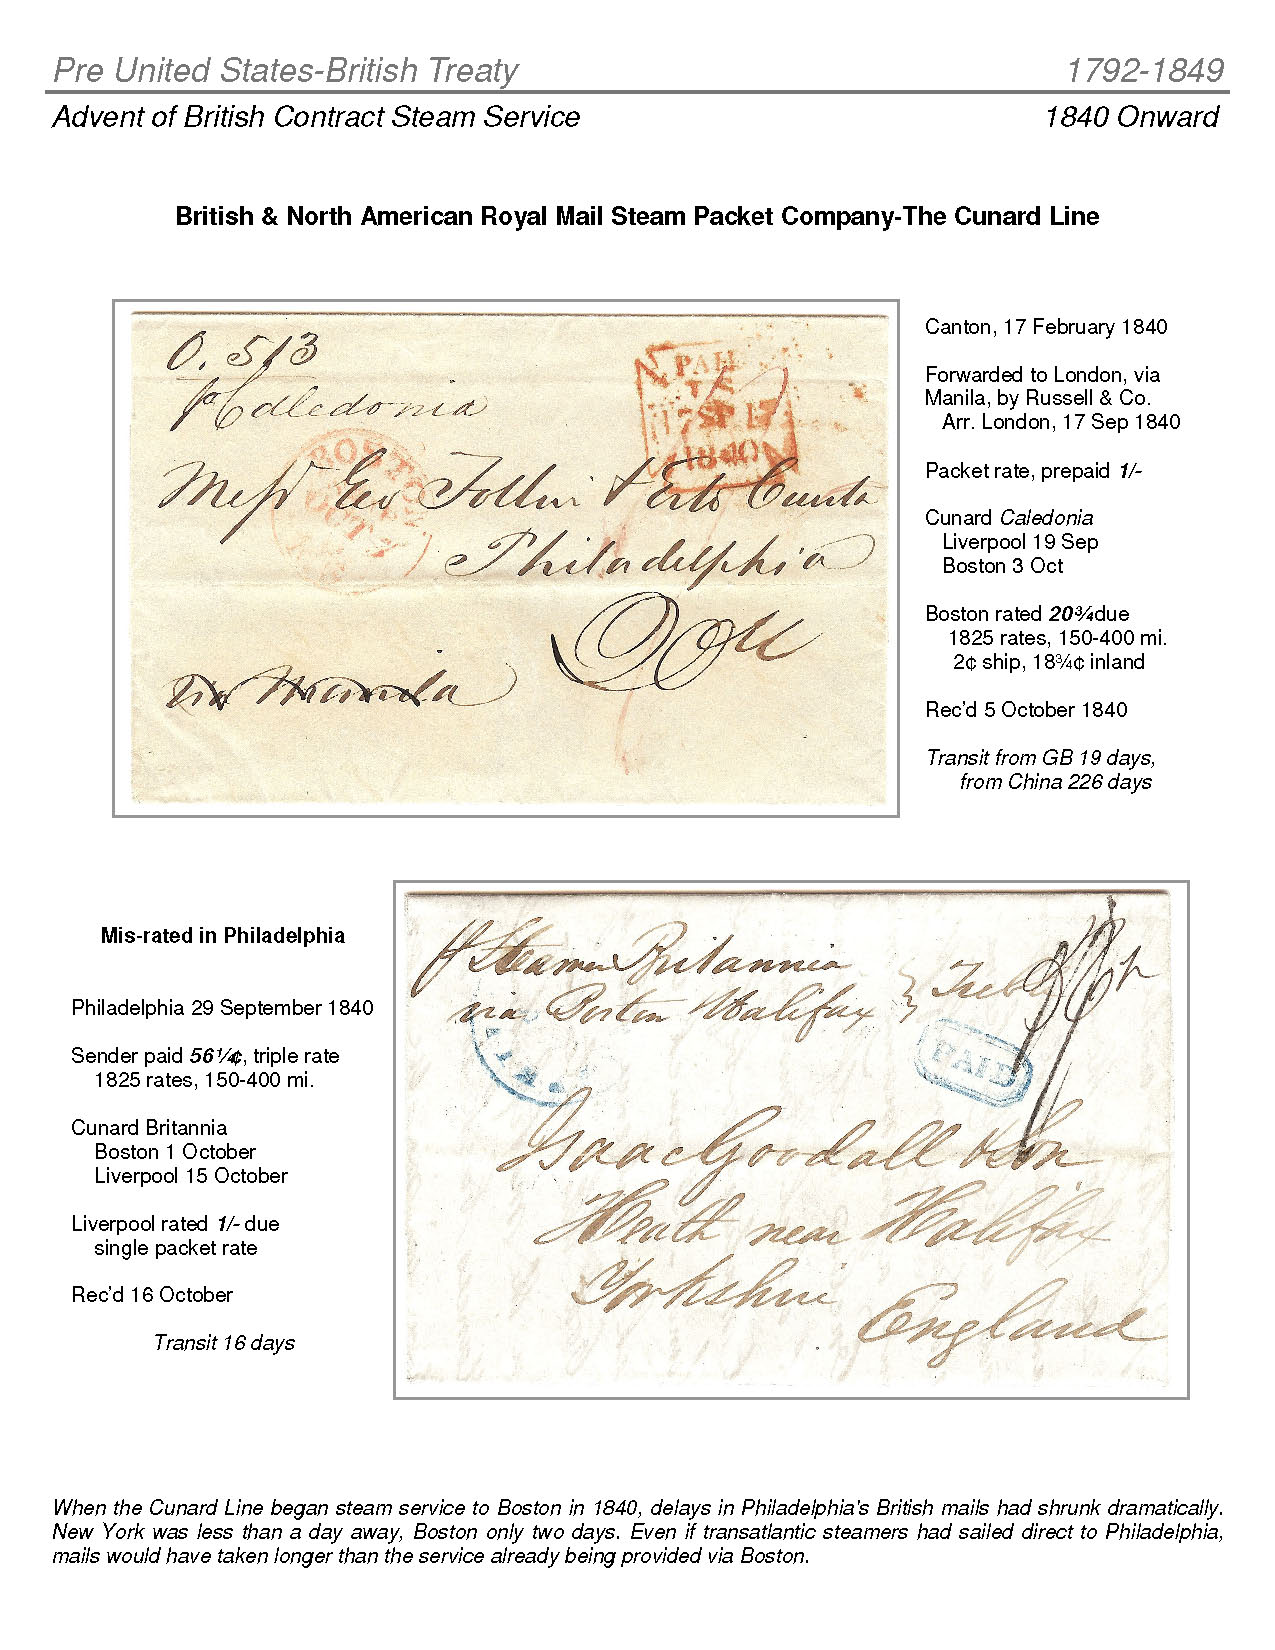 Pre United States-British Treaty 1792-1849
Advent of British Contract Steam Service 1840 Onward
British & North American Royal Mail Steam Packet Company-The Cunard Line
O. 513
pr Caledonia
PAID
17 SP 17
1840
BOSTON
OCT
Messrs Geo
Philadelphia
via Manila
Canton, 17 February 1840
Forwarded to London, via
Manila, by Russell & Co.
Arr. London, 17 Sep 1840
Packet rate, prepaid 1/-
Cunard Caledonia
Liverpool 19 Sep
Boston 3 Oct
Boston rated 20¾due
1825 rates, 150-400 mi.
2¢ ship, 18¾¢ inland
Rec'd 5 October 1840
Transit from GB 19 days,
from China 226 days
Mis-rated in Philadelphia
Philadelphia 29 September 1840
Sender paid 56¼¢, triple rate
1825 rates, 150-400 mi.
Cunard Britannia
Boston 1 October
Liverpool 15 October
Liverpool rated 1/- due
single packet rate
Rec'd 16 October
Transit 16 days
pr Steamer Britannia
via Boston Halifax
PAID
Isaac Goodall & Son
Heath near Halifax
Yorkshire
England
When the Cunard Line began steam service to Boston in 1840, delays in Philadelphia's British mails had shrunk dramatically.
New York was less than a day away, Boston only two days. Even if transatlantic steamers had sailed direct to Philadelphia,
mails would have taken longer than the service already being provided via Boston.